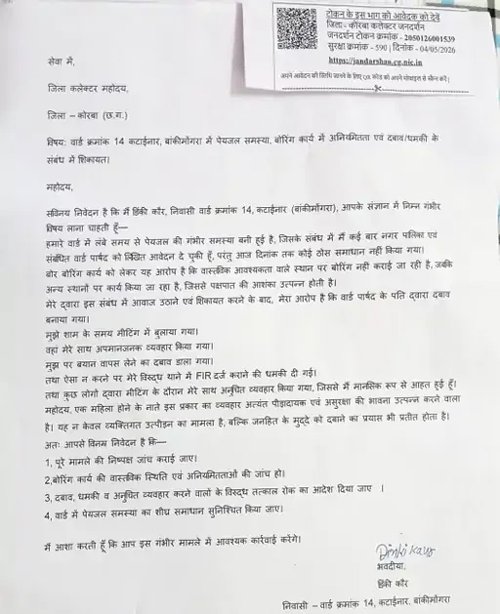 टोकन के इस भाग को आवेदक को देवें
जिला:- कोरबा कलेक्टर जनदर्शन
जनदर्शन टोकन क्रमांक - 2050126001539
सुरक्षा क्रमांक - 590 | दिनांक - 04/05/2026
https://jandarshan.cg.nic.in
अपने आवेदन की स्तिथि जानने के लिए QR कोड को अपने मोबाइल से स्कैन करें |
सेवा में,
जिला कलेक्टर महोदय,
जिला – कोरबा (छ.ग.)
विषय: वार्ड क्रमांक 14 कटाईनार, बांकीमोंगरा में पेयजल समस्या, बोरिंग कार्य में अनियमितता एवं दबाव/धमकी के
संबंध में शिकायत।
महोदय,
सविनय निवेदन है कि मैं डिंकी कौर, निवासी वार्ड क्रमांक 14, कटाईनार (बांकीमोंगरा), आपके संज्ञान में निम्न गंभीर
विषय लाना चाहती हूँ—
हमारे वार्ड में लंबे समय से पेयजल की गंभीर समस्या बनी हुई है, जिसके संबंध में मैं कई बार नगर पालिका एवं
संबंधित वार्ड पार्षद को लिखित आवेदन दे चुकी हूँ, परंतु आज दिनांक तक कोई ठोस समाधान नहीं किया गया।
बोर बोरिंग कार्य को लेकर यह आरोप है कि वास्तविक आवश्यकता वाले स्थान पर बोरिंग नहीं कराई जा रही है, जबकि
अन्य स्थानों पर कार्य किया जा रहा है, जिससे पक्षपात की आशंका उत्पन्न होती है।
मेरे द्वारा इस संबंध में आवाज उठाने एवं शिकायत करने के बाद, मेरा आरोप है कि वार्ड पार्षद के पति द्वारा दबाव
बनाया गया।
मुझे शाम के समय मीटिंग में बुलाया गया।
वहां मेरे साथ अपमानजनक व्यवहार किया गया।
मुझ पर बयान वापस लेने का दबाव डाला गया।
तथा ऐसा न करने पर मेरे विरुद्ध थाने में FIR दर्ज कराने की धमकी दी गई।
तथा कुछ लोगों द्वारा मीटिंग के दौरान मेरे साथ अनुचित व्यवहार किया गया, जिससे में मानसिक रूप से आहत हुई हूँ।
महोदय, एक महिला होने के नाते इस प्रकार का व्यवहार अत्यंत पीड़ादायक एवं असुरक्षा की भावना उत्पन्न करने वाला
है। यह न केवल व्यक्तिगत उत्पीड़न का मामला है, बल्कि जनहित के मुद्दे को दबाने का प्रयास भी प्रतीत होता है।
अतः आपसे विनम्र निवेदन है कि—
1, पूरे मामले की निष्पक्ष जांच कराई जाए।
2,बोरिंग कार्य की वास्तविक स्थिति एवं अनियमितताओं की जांच हो।
3, दबाव, धमकी व अनुचित व्यवहार करने वालो के विरुद्ध तत्काल रोक का आदेश दिया जाए ।
4, वार्ड में पेयजल समस्या का शीघ्र समाधान सुनिश्चित किया जाए।
मैं आशा करती हूँ कि आप इस गंभीर मामले में आवश्यक कार्रवाई करेंगे।
Dinki Kaur
भवदीया,
डिंकी कौर
निवासी – वार्ड क्रमांक 14, कटाईनार, बांकीमोंगरा